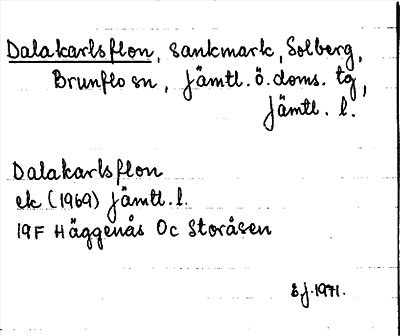 Dalakarlsflon, sankmark, Solberg,
Brunflo sn, Jämtl. ö. doms. tg,
Jämtl. l.
Dalakarlsflon
ek (1969) Jämtl. l.
19F Häggenås Oc Storåsen
EJ. 1971.